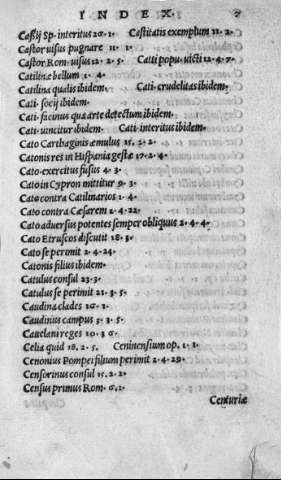 INDEX.
Cassij Sp. interitus 26. 1. Castitatis exemplum 11. 2.
Castor uisus pugnare 11. 1.
Castor Rom. uisus 12. 2. 5. Catti popu. uicti 12. 4. 7.
Catilinæ bellum 1. 4.
Catilina qualis ibidem. Cati. crudelitas ibidem.
Cati. socij ibidem.
Cati. facinus qua arte detectum ibidem.
Cati. uincitur ibidem. Cati. interitus ibidem.
Cato Carthaginis æmulus 15. 2. 2.
Catonis res in Hispania gestæ 17. 2. 4.
Cato. exercitus fusus 4. 3.
Cato in Cypron mittitur 9. 3.
Cato contra Catilinarios 1. 4.
Cato contra Cæsarem 2. 4. 22.
Cato aduersus potentes semper obliquus 2. 4. 4.
Cato Etruscos discutit 18. 3.
Cato se perimit 2. 4. 24.
Catonis filius ibidem.
Catulus consul 23. 3.
Catulus se perimit 21. 3. 5.
Caudina clades 16. 1.
Caudinus campus 3. 3. 5.
Cauelani reges 10. 3
Celia quid 18. 2. 5. Ceninensium op. 1. 1.
Cenonius Pompei filium perimit 2. 4. 29.
Censorinus consul 15. 2. 2.
Census primus Rom. 6. 1.
Centuriæ